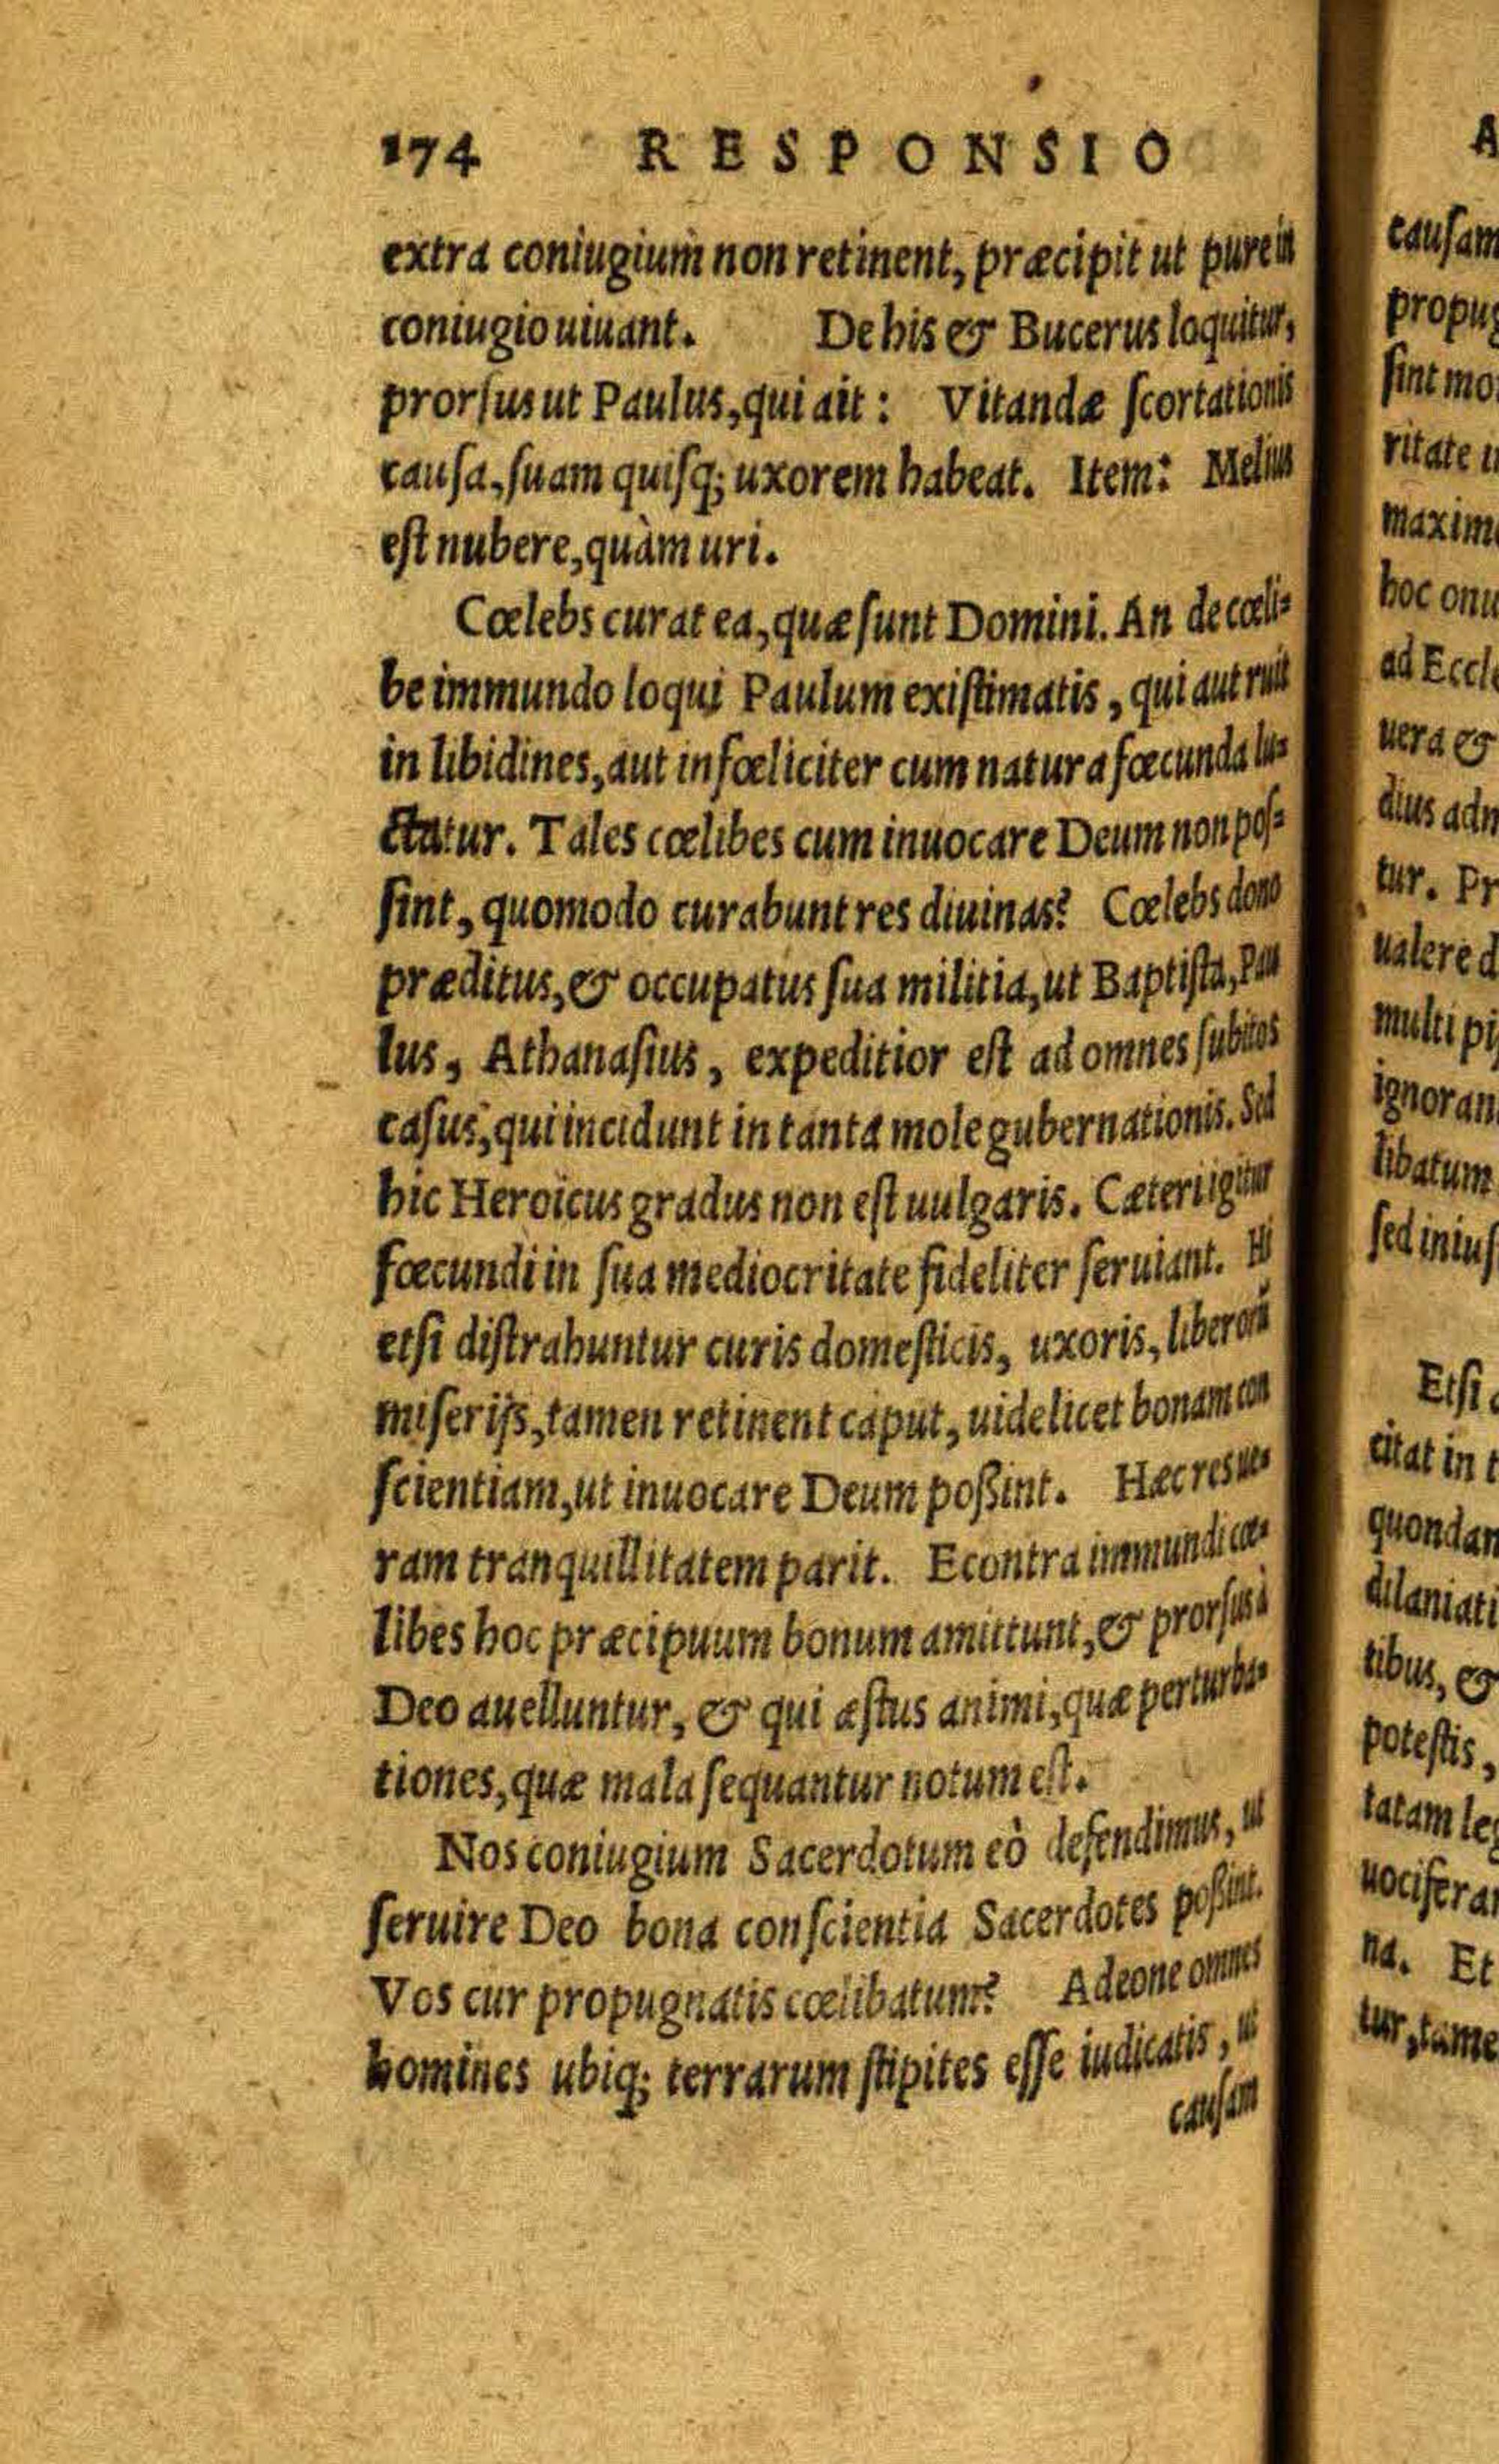 174 RESPONSIO
extra coniugium non retinent, præcipit ut pure in
coniugio uiuant. De his & Bucerus loquitur,
prorſus ut Paulus, qui ait: Vitandæ ſcortationis
cauſa, ſuam quiſq; uxorem habeat. Item: Melius
eſt nubere, quàm uri.
Cœlebs curat ea, quæ ſunt Domini. An de cœli-
be immundo loqui Paulum exiſtimatis, qui aut ruit
in libidines, aut infœliciter cum natura fœcunda lu-
ctatur. Tales cœlibes cum inuocare Deum non poſ-
ſint, quomodo curabunt res diuinas? Cœlebs dono
præditus, & occupatus ſua militia, ut Baptiſta, Pau
lus, Athanaſius, expeditior eſt ad omnes ſubitos
caſus, qui incidunt in tanta mole gubernationis. Sed
hic Heroicus gradus non eſt uulgaris. Cæteri igitur
fœcundi in ſua mediocritate fideliter ſeruiant. Hi
etſi diſtrahuntur curis domeſticis, uxoris, liberorũ
miſerijs, tamen retinent caput, uidelicet bonam con
ſcientiam, ut inuocare Deum poßint. Hæc res ue-
ram tranquillitatem parit. Econtra immundi cœ-
libes hoc præcipuum bonum amittunt, & prorſus à
Deo auelluntur, & qui æſtus animi, quæ perturba-
tiones, quæ mala ſequantur notum eſt.
Nos coniugium Sacerdotum eò defendimus, ut
ſeruire Deo bona conſcientia Sacerdotes poßint.
Vos cur propugnatis cœlibatum? Adeone omnes
homines ubiq; terrarum ſtipites eſſe iudicatis, ut
cauſam
A
cauſam
ſint mo
ritate
hoc onu
uera &
dius
tur. Pr
ualere d
multi pij
libatum
Etſi
citat in
dilaniati
tibus, &
poteſtis,
na. Et
tur, tame